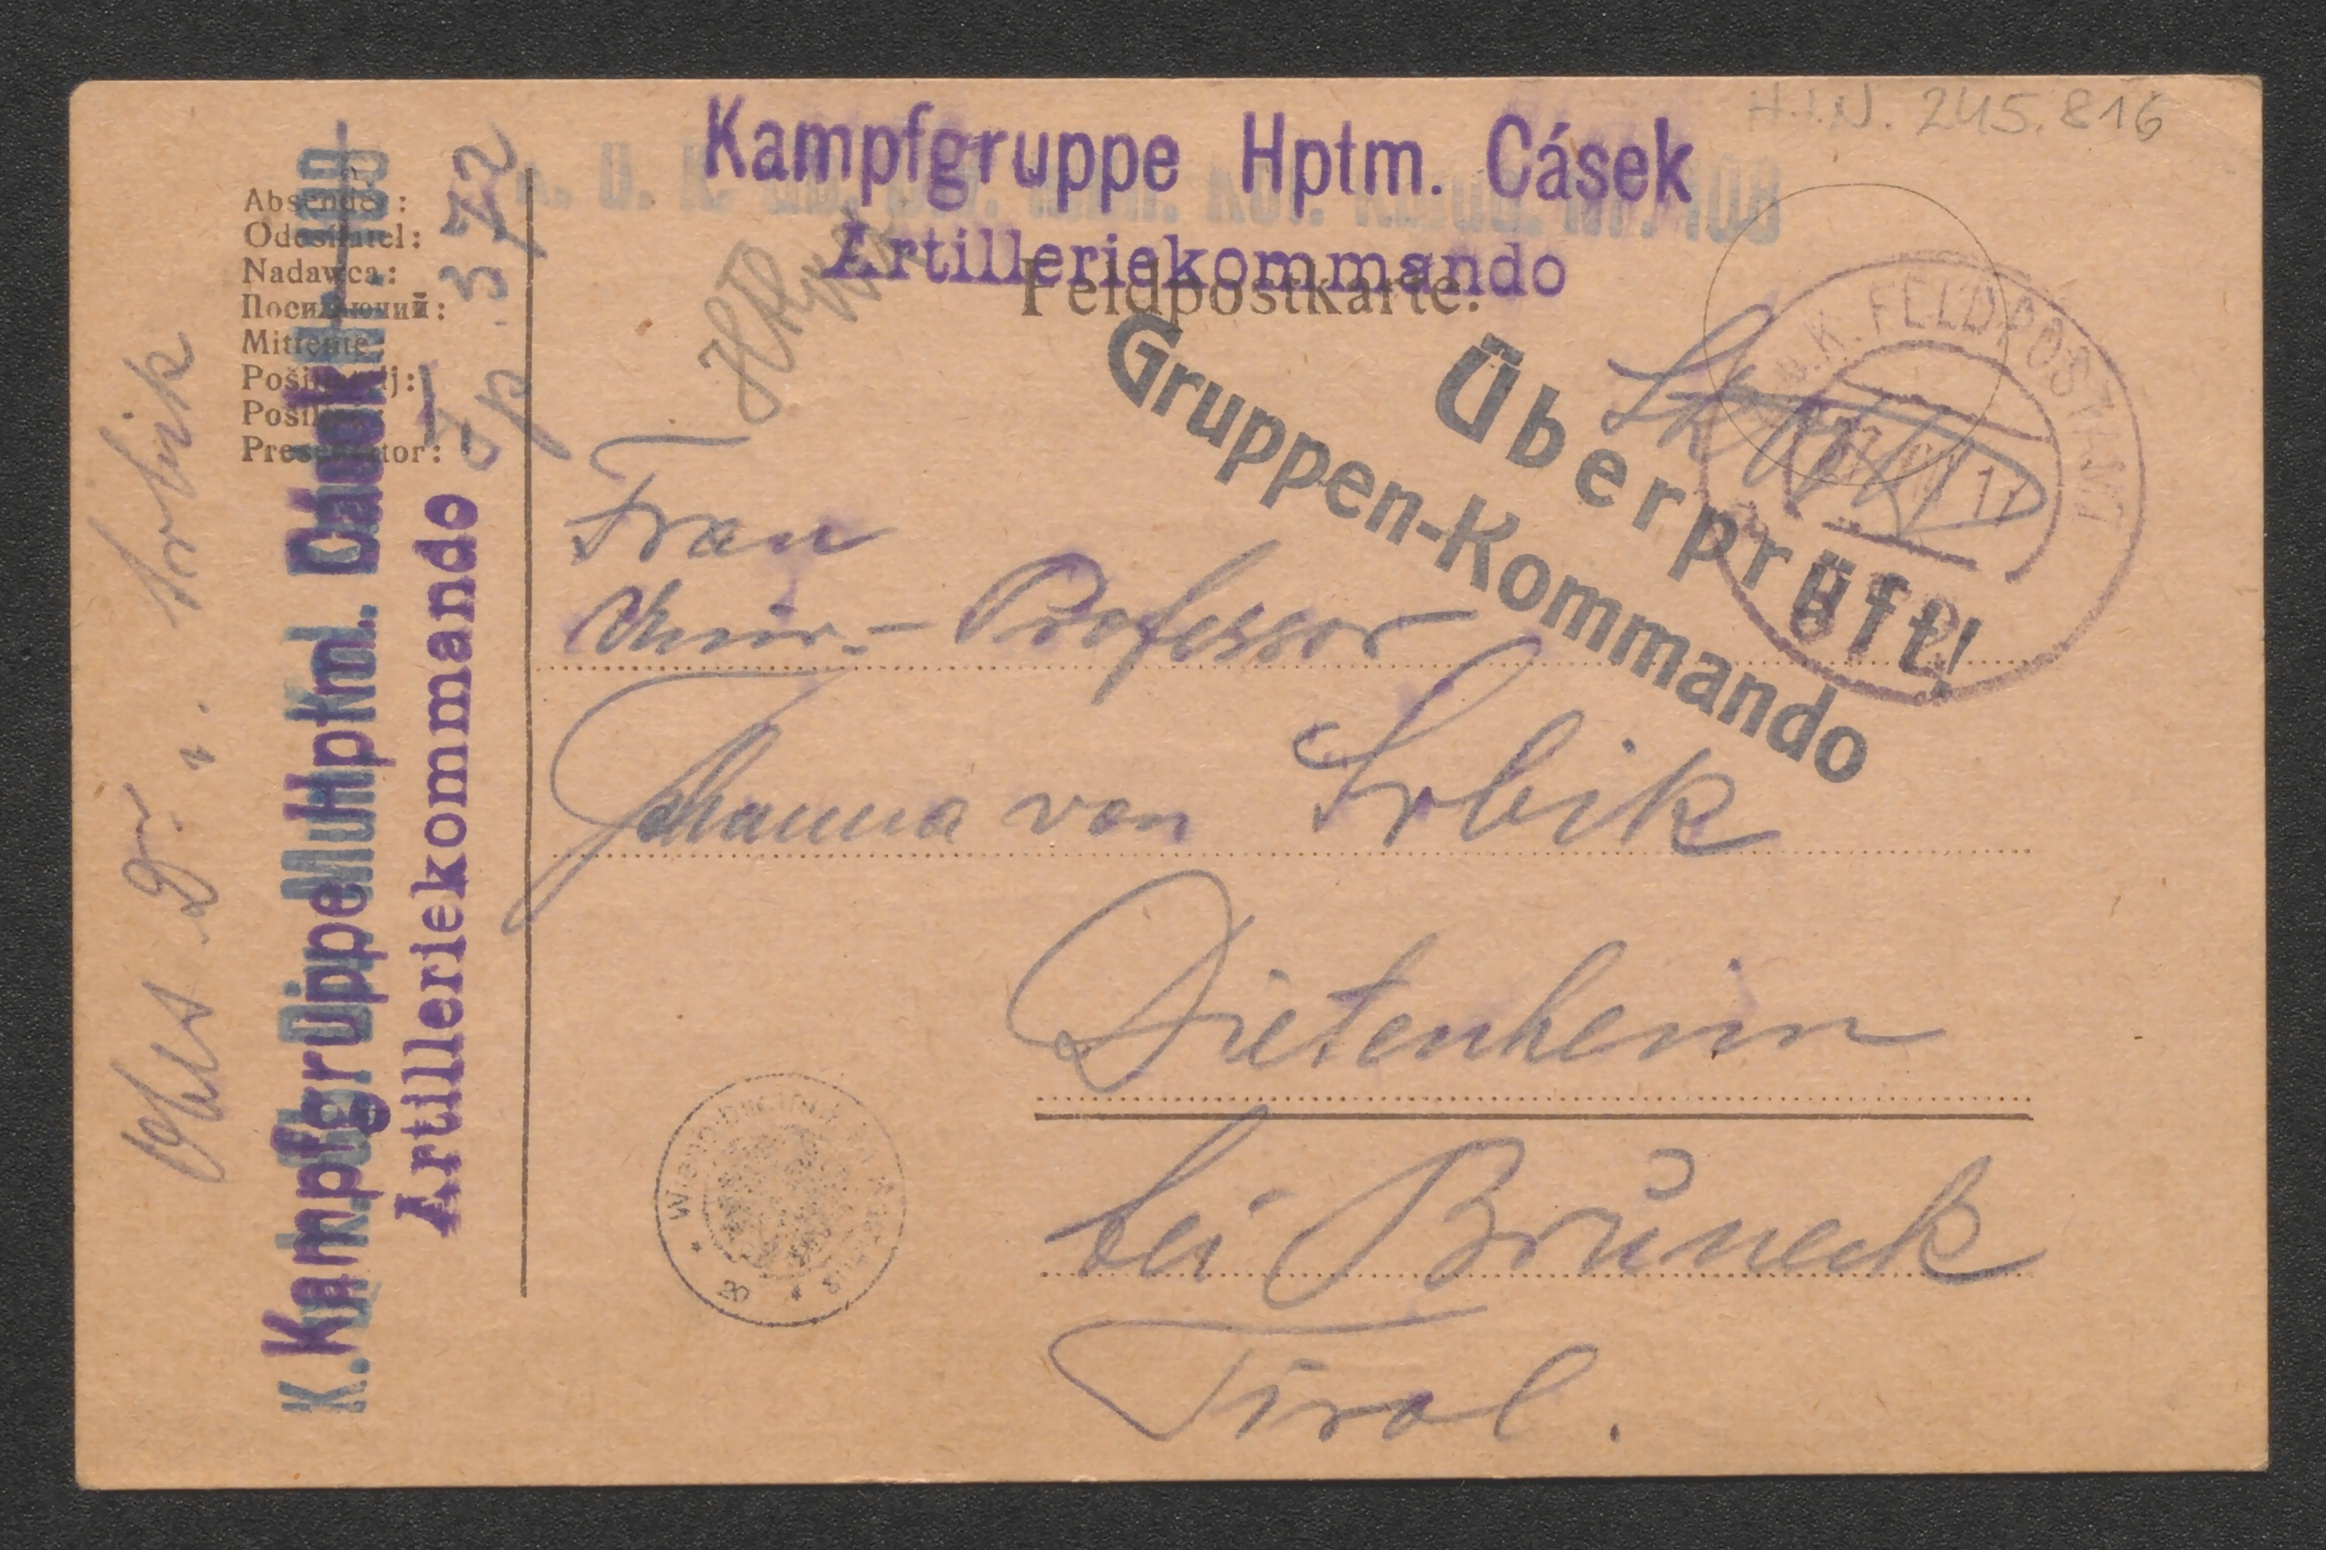 H.I.N. 245.816
Kampfgruppe Hptm. Cásek
Artilleriekommando
Feldpostkarte.
Absender:
Odosilatel:
Nadawca:
Посилаючий:
Mittente:
Pošiljatelj:
Pošiljač:
Presentator:
Fp. 372
Srbik
Kampfgruppe Hptm. Cásek
Artilleriekommando
K.u.K. FELDPOSTAMT
Überprüft!
Gruppen-Kommando
Frau
Univ.-Professor
Johanna von Srbik
Dietenheim
bei Bruneck
Tirol.